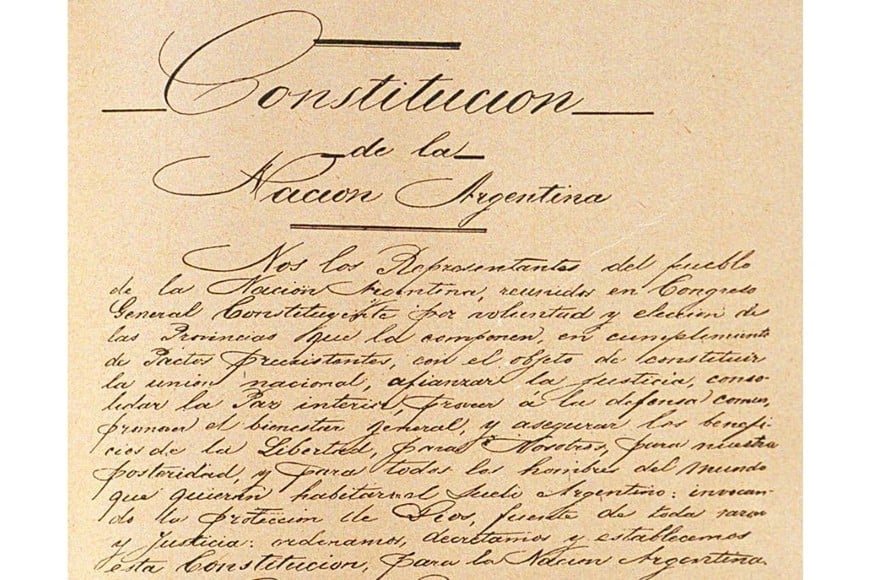 Constitucion
de la
Nacion Argentina
Nos los Representantes del pueblo
de la Nacion Argentina, reunidos en Congreso
General Constituyente por voluntad y eleccion de
las Provincias que la componen, en cumplimiento
de Pactos preexistentes, con el objeto de constituir
la union nacional, afianzar la justicia, conso-
lidar la Paz interior, proveer á la defensa comun,
promover el bienestar general, y asegurar los benefi-
cios de la Libertad, para Nosotros, para nuestra
posteridad, y para todos los hombres del mundo
que quieran habitar el suelo Argentino: invocan-
do la proteccion de Dios, fuente de toda razon
y Justicia: ordenamos, decretamos y establecemos
esta Constitucion, para la Nacion Argentina.